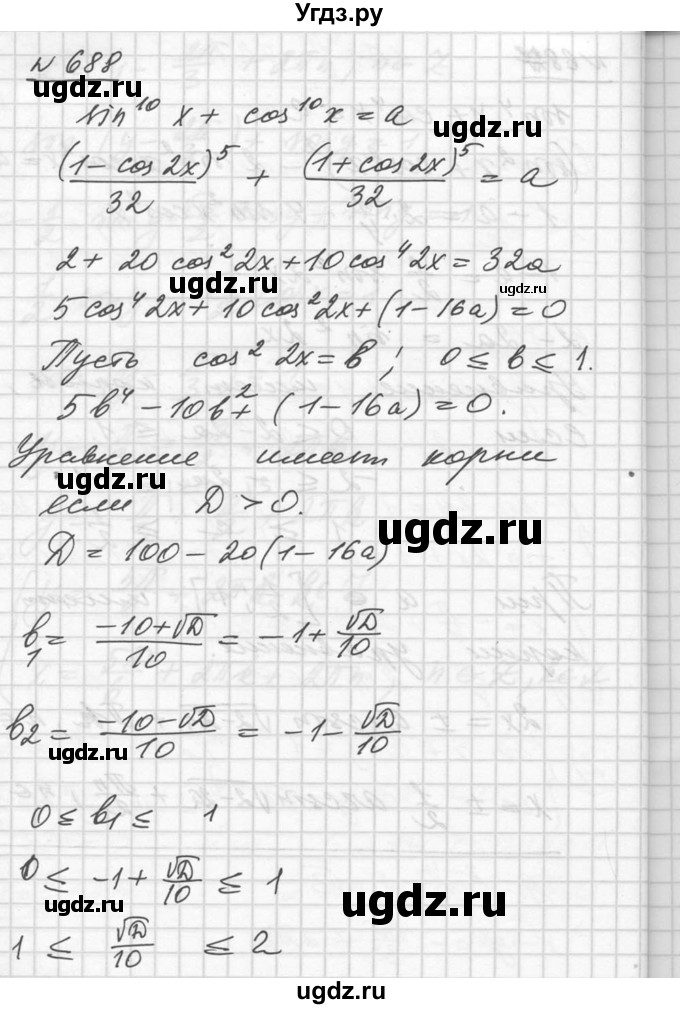 Угдз.ру
N 688
ugdz.ru
sin¹⁰ x + cos¹⁰ x = a
ugdz.ru
(1 - cos 2x)⁵/32 + (1 + cos 2x)⁵/32 = a
ugdz.ru
2 + 20 cos² 2x + 10 cos⁴ 2x = 32a
ugdz.ru ugdz.ru
5 cos⁴ 2x + 10 cos² 2x + (1 - 16a) = 0
Пусть cos² 2x = b; 0 ≤ b ≤ 1.
5b⁴ - 10b² + (1 - 16a) = 0.
Уравнение имеет корни
ugdz.ru
если D > 0.
ugdz.ru
D = 100 - 20(1 - 16a)
b₁ = (-10 + √D)/10 = -1 + √D/10
b₂ = (-10 - √D)/10 = -1 - √D/10
ugdz.ru
0 ≤ b₁ ≤ 1
0 ≤ -1 + √D/10 ≤ 1
ugdz.ru ugdz.ru
1 ≤ √D/10 ≤ 2
ugdz.ru